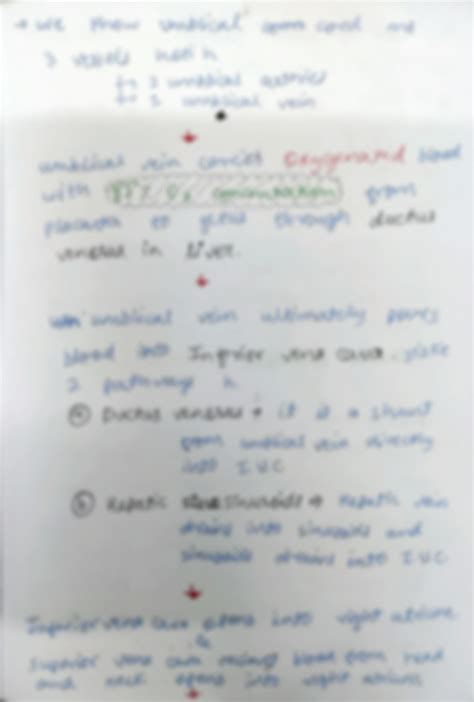 → we know umbilical cord
3 vessels
↳ 2 umbilical arteries
↳ 1 umbilical vein
umbilical vein carries Oxygenated blood
with O₂ concentration from
placenta to through ductus
venosus in liver.
umbilical vein ultimately
blood into Inferior vena cava.
2 pathways
ⓐ Ductus venosus → it is a shunt
from umbilical vein directly
into I.V.C
ⓑ Hepatic sinusoids → Hepatic vein
drains into sinusoids and
sinusoids drains into I.V.C
Inferior vena cava opens into right atrium
&
Superior vena cava blood from head
and neck opens into right atrium